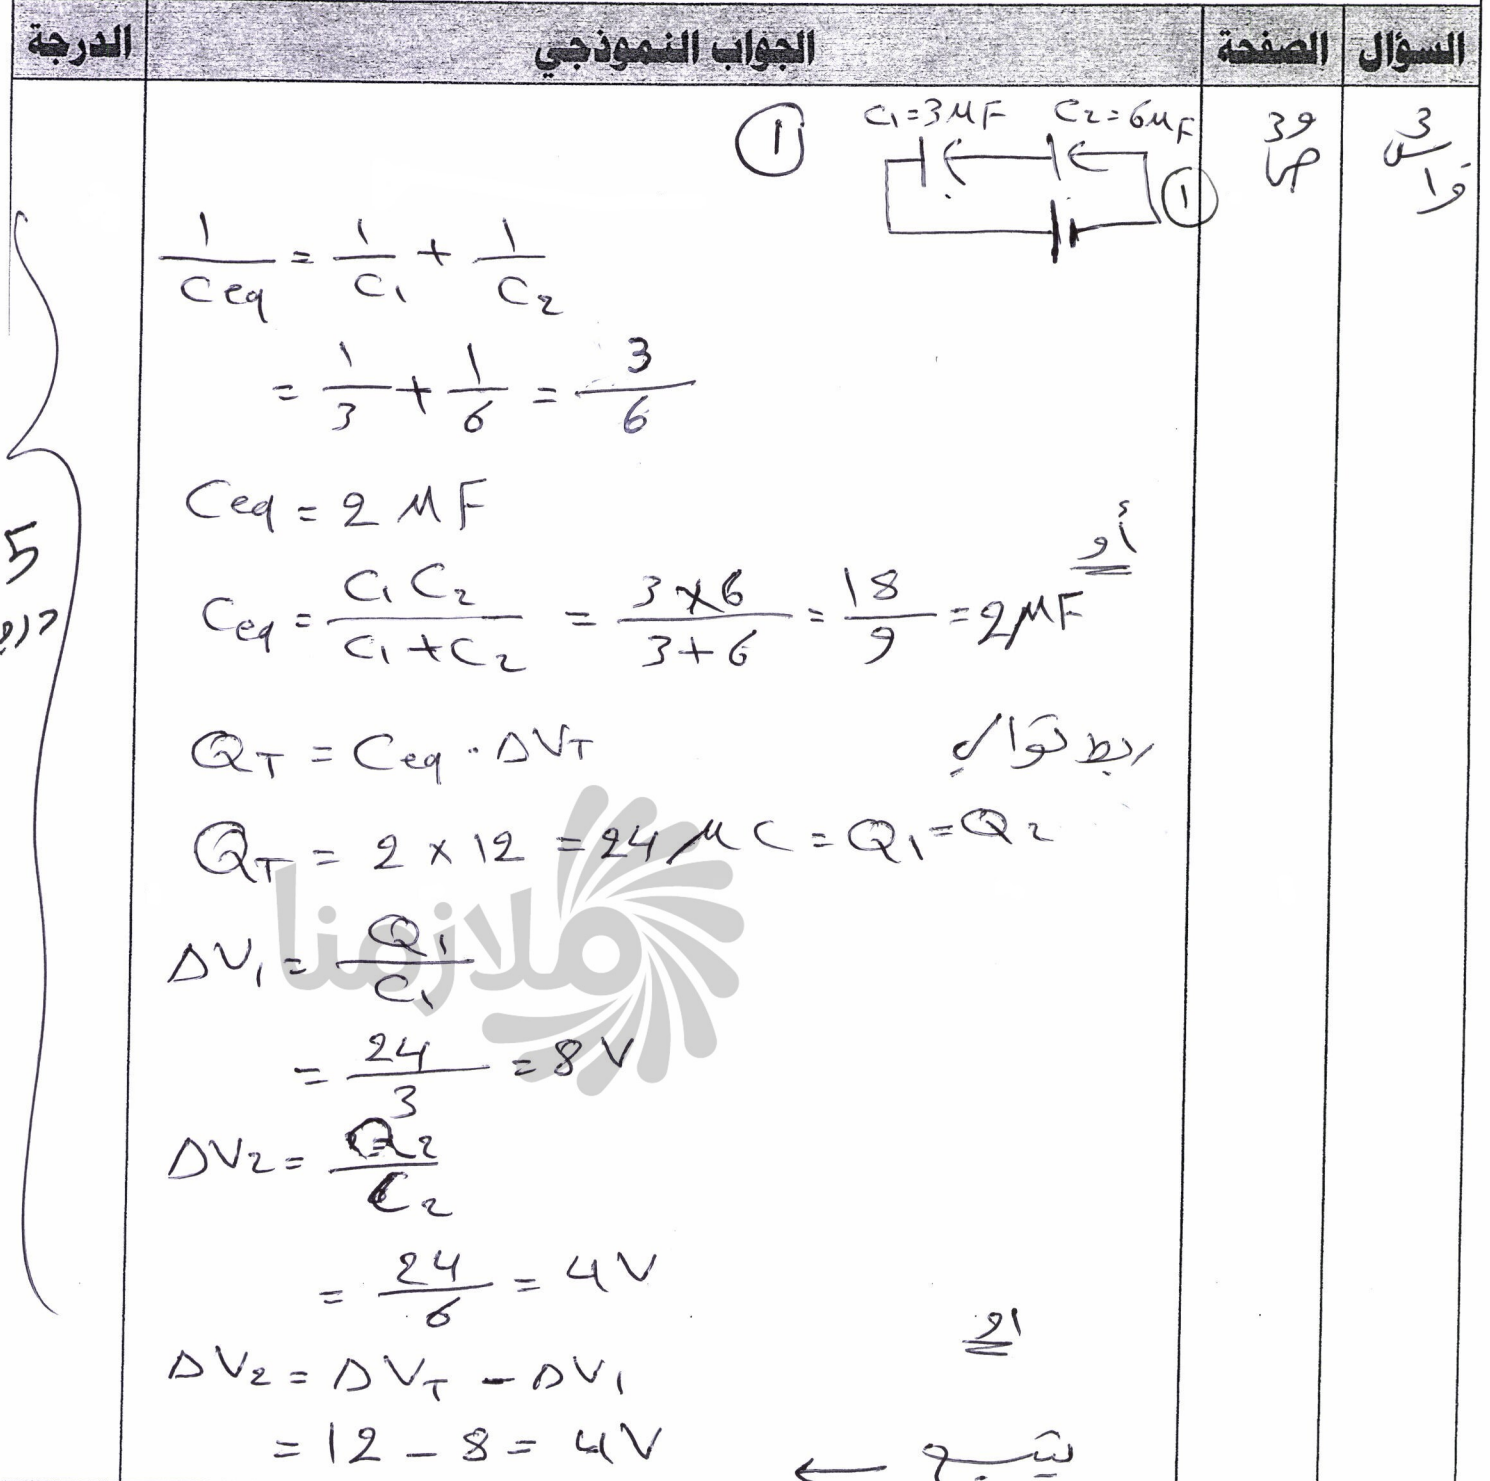 السؤال الصفحة الجواب النموذجي الدرجة
3
39
ص
① C₁=3μF C₂=6μF
①
1/Ceq = 1/C₁ + 1/C₂
= 1/3 + 1/6 = 3/6
Ceq = 2 μF
أو
Ceq = C₁C₂/(C₁+C₂) = 3×6/(3+6) = 18/9 = 2μF
5
QT = Ceq · ΔVT ربط توالي
QT = 2 × 12 = 24 μC = Q₁ = Q₂
ملازمنا
ΔV₁ = Q₁/C₁
= 24/3 = 8V
ΔV₂ = Q₂/C₂
= 24/6 = 4V
او
ΔV₂ = ΔVT - ΔV₁
= 12 - 8 = 4V
يتبع ←